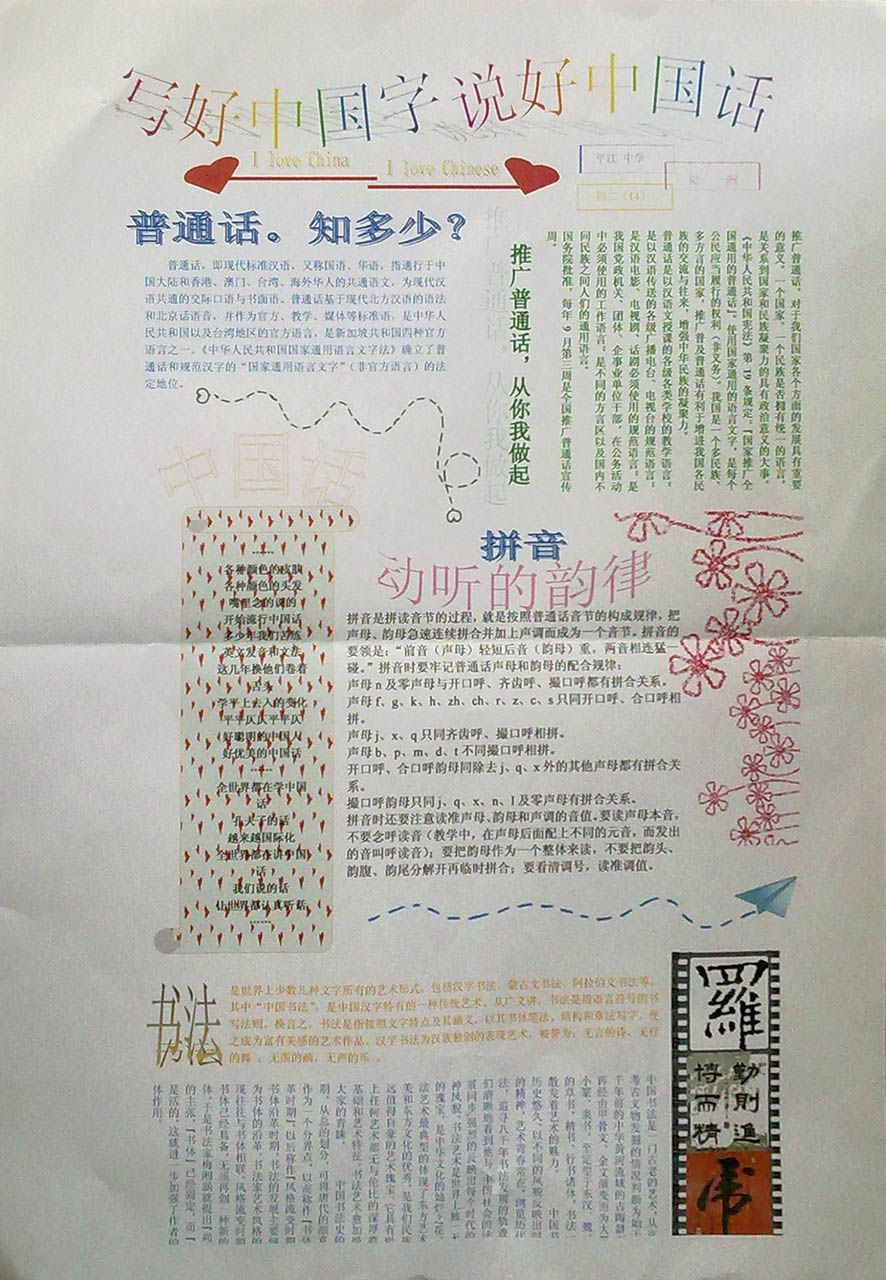 写好中国字 说好中国话
I love China
I love Chinese
平江 中学
初二（14）
普通话。知多少？
普通话，即现代标准汉语，又称国语、华语，指通行于中
国大陆和香港、澳门、台湾、海外华人的共通语文，为现代汉
语共通的交际口语与书面语。普通话基于现代北方汉语的语法
和北京话语音，并作为官方、教学、媒体等标准语，是中华人
民共和国以及台湾地区的官方语言，是新加坡共和国四种官方
语言之一。《中华人民共和国国家通用语言文字法》确立了普
通话和规范汉字的“国家通用语言文字”（非官方语言）的法
定地位。
推广普通话，从你我做起
推广普通话，对于我们国家各个方面的发展具有重要
的意义。一个国家、一个民族是否拥有统一的语言，
是关系到国家和民族凝聚力的具有政治意义的大事。
《中华人民共和国宪法》第 19 条规定：「国家推广全
国通用的普通话」。使用国家通用的语言文字，是每个
公民应当履行的权利（非义务）。我国是一个多民族、
多方言的国家，推广普及普通话有利于增进我国各民
族的交流与往来，增强中华民族的凝聚力。
普通话是以汉语文授课的各级各类学校的教学语言；
是以汉语传送的各级广播电台、电视台的规范语言；
是汉语电影、电视剧、话剧必须使用的规范语言；是
我国党政机关、团体、企事业单位干部，在公务活动
中必须使用的工作语言；是不同的方言区以及国内不
同民族之间人们的通用语言。
国务院批准，每年 9 月第三周是全国推广普通话宣传
周。
中国话
------
各种颜色的皮肤
各种颜色的头发
嘴里念的说的
开始流行中国话
多少年我们苦练
英文发音和文法
这几年换他们卷着
舌头
学平上去入的变化
平平仄仄平平仄
好聪明的中国人
好优美的中国话
------
全世界都在学中国
话
孔夫子的话
越来越国际化
全世界都在讲中国
话
我们说的话
让世界都认真听话
------
拼音
动听的韵律
拼音是拼读音节的过程，就是按照普通话音节的构成规律，把
声母、韵母急速连续拼合并加上声调而成为一个音节。拼音的
要领是：“前音（声母）轻短后音（韵母）重，两音相连猛一
碰。”拼音时要牢记普通话声母和韵母的配合规律：
声母 n 及零声母与开口呼、齐齿呼、撮口呼都有拼合关系。
声母 f、g、k、h、zh、ch、r、z、c、s 只同开口呼、合口呼相
拼。
声母 j、x、q 只同齐齿呼、撮口呼相拼。
声母 b、p、m、d、t 不同撮口呼相拼。
开口呼、合口呼韵母同除去 j、q、x 外的其他声母都有拼合关
系。
撮口呼韵母只同 j、q、x、n、l 及零声母有拼合关系。
拼音时还要注意读准声母、韵母和声调的音值。要读声母本音，
不要念呼读音（教学中，在声母后面配上不同的元音，而发出
的音叫呼读音）；要把韵母作为一个整体来读，不要把韵头、
韵腹、韵尾分解开再临时拼合；要看清调号，读准调值。
书法
是世界上少数几种文字所有的艺术形式，包括汉字书法、蒙古文书法、阿拉伯文书法等。
其中“中国书法”，是中国汉字特有的一种传统艺术。从广义讲，书法是指语言符号的书
写法则。换言之，书法是指按照文字特点及其涵义，以其书体笔法、结构和章法写字，使
之成为富有美感的艺术作品。汉字书法为汉族独创的表现艺术，被誉为：无言的诗，无行
的舞；无图的画，无声的乐。
羅
勤則進
博而精
中国书法是一门古老的艺术，从
考古文物发掘的情况判断为始于
千年前的中华黄河流域的古陶
再经由甲骨文、金文演变而为大
小篆、隶书，至定型于东汉、魏、
的草书、楷书、行书诸体，书法一
散发着艺术的魅力。 中国书
历史悠久，以不同的风貌反映出时
的精神，艺术青春常在。浏览历代
法，追寻八千年书法发展的轨迹
们清晰地看到他与中国社会的
展同步，强烈的反映出每个时代的
神风貌。书法艺术是世界上独一无
的瑰宝，是中华文化的灿烂之花。
法艺术最典型的体现了东方艺术
美和东方文化的优秀，是我们民族
远值得自豪的艺术瑰宝。它具有世
上任何艺术都无与伦比的深厚群
基础和艺术特征。书法艺术愈加受
大家的青睐。 中国书法史的
期，从总的划分，可将唐代的颜真
作为一个分界点，以前称作「书体
革时期」，以后称作「风格流变时期
书体沿革时期，书法的发展主要倾
为书体的沿革，书法家艺术风格的
现往往与书体相联。风格流变时期
书体已经具备，无须再创一种新的
体。于是书法家梅湘涵就提出「尚
的主张。「书体」已经固定，而「
是活的。这就进一步加强了作者的
体作用。